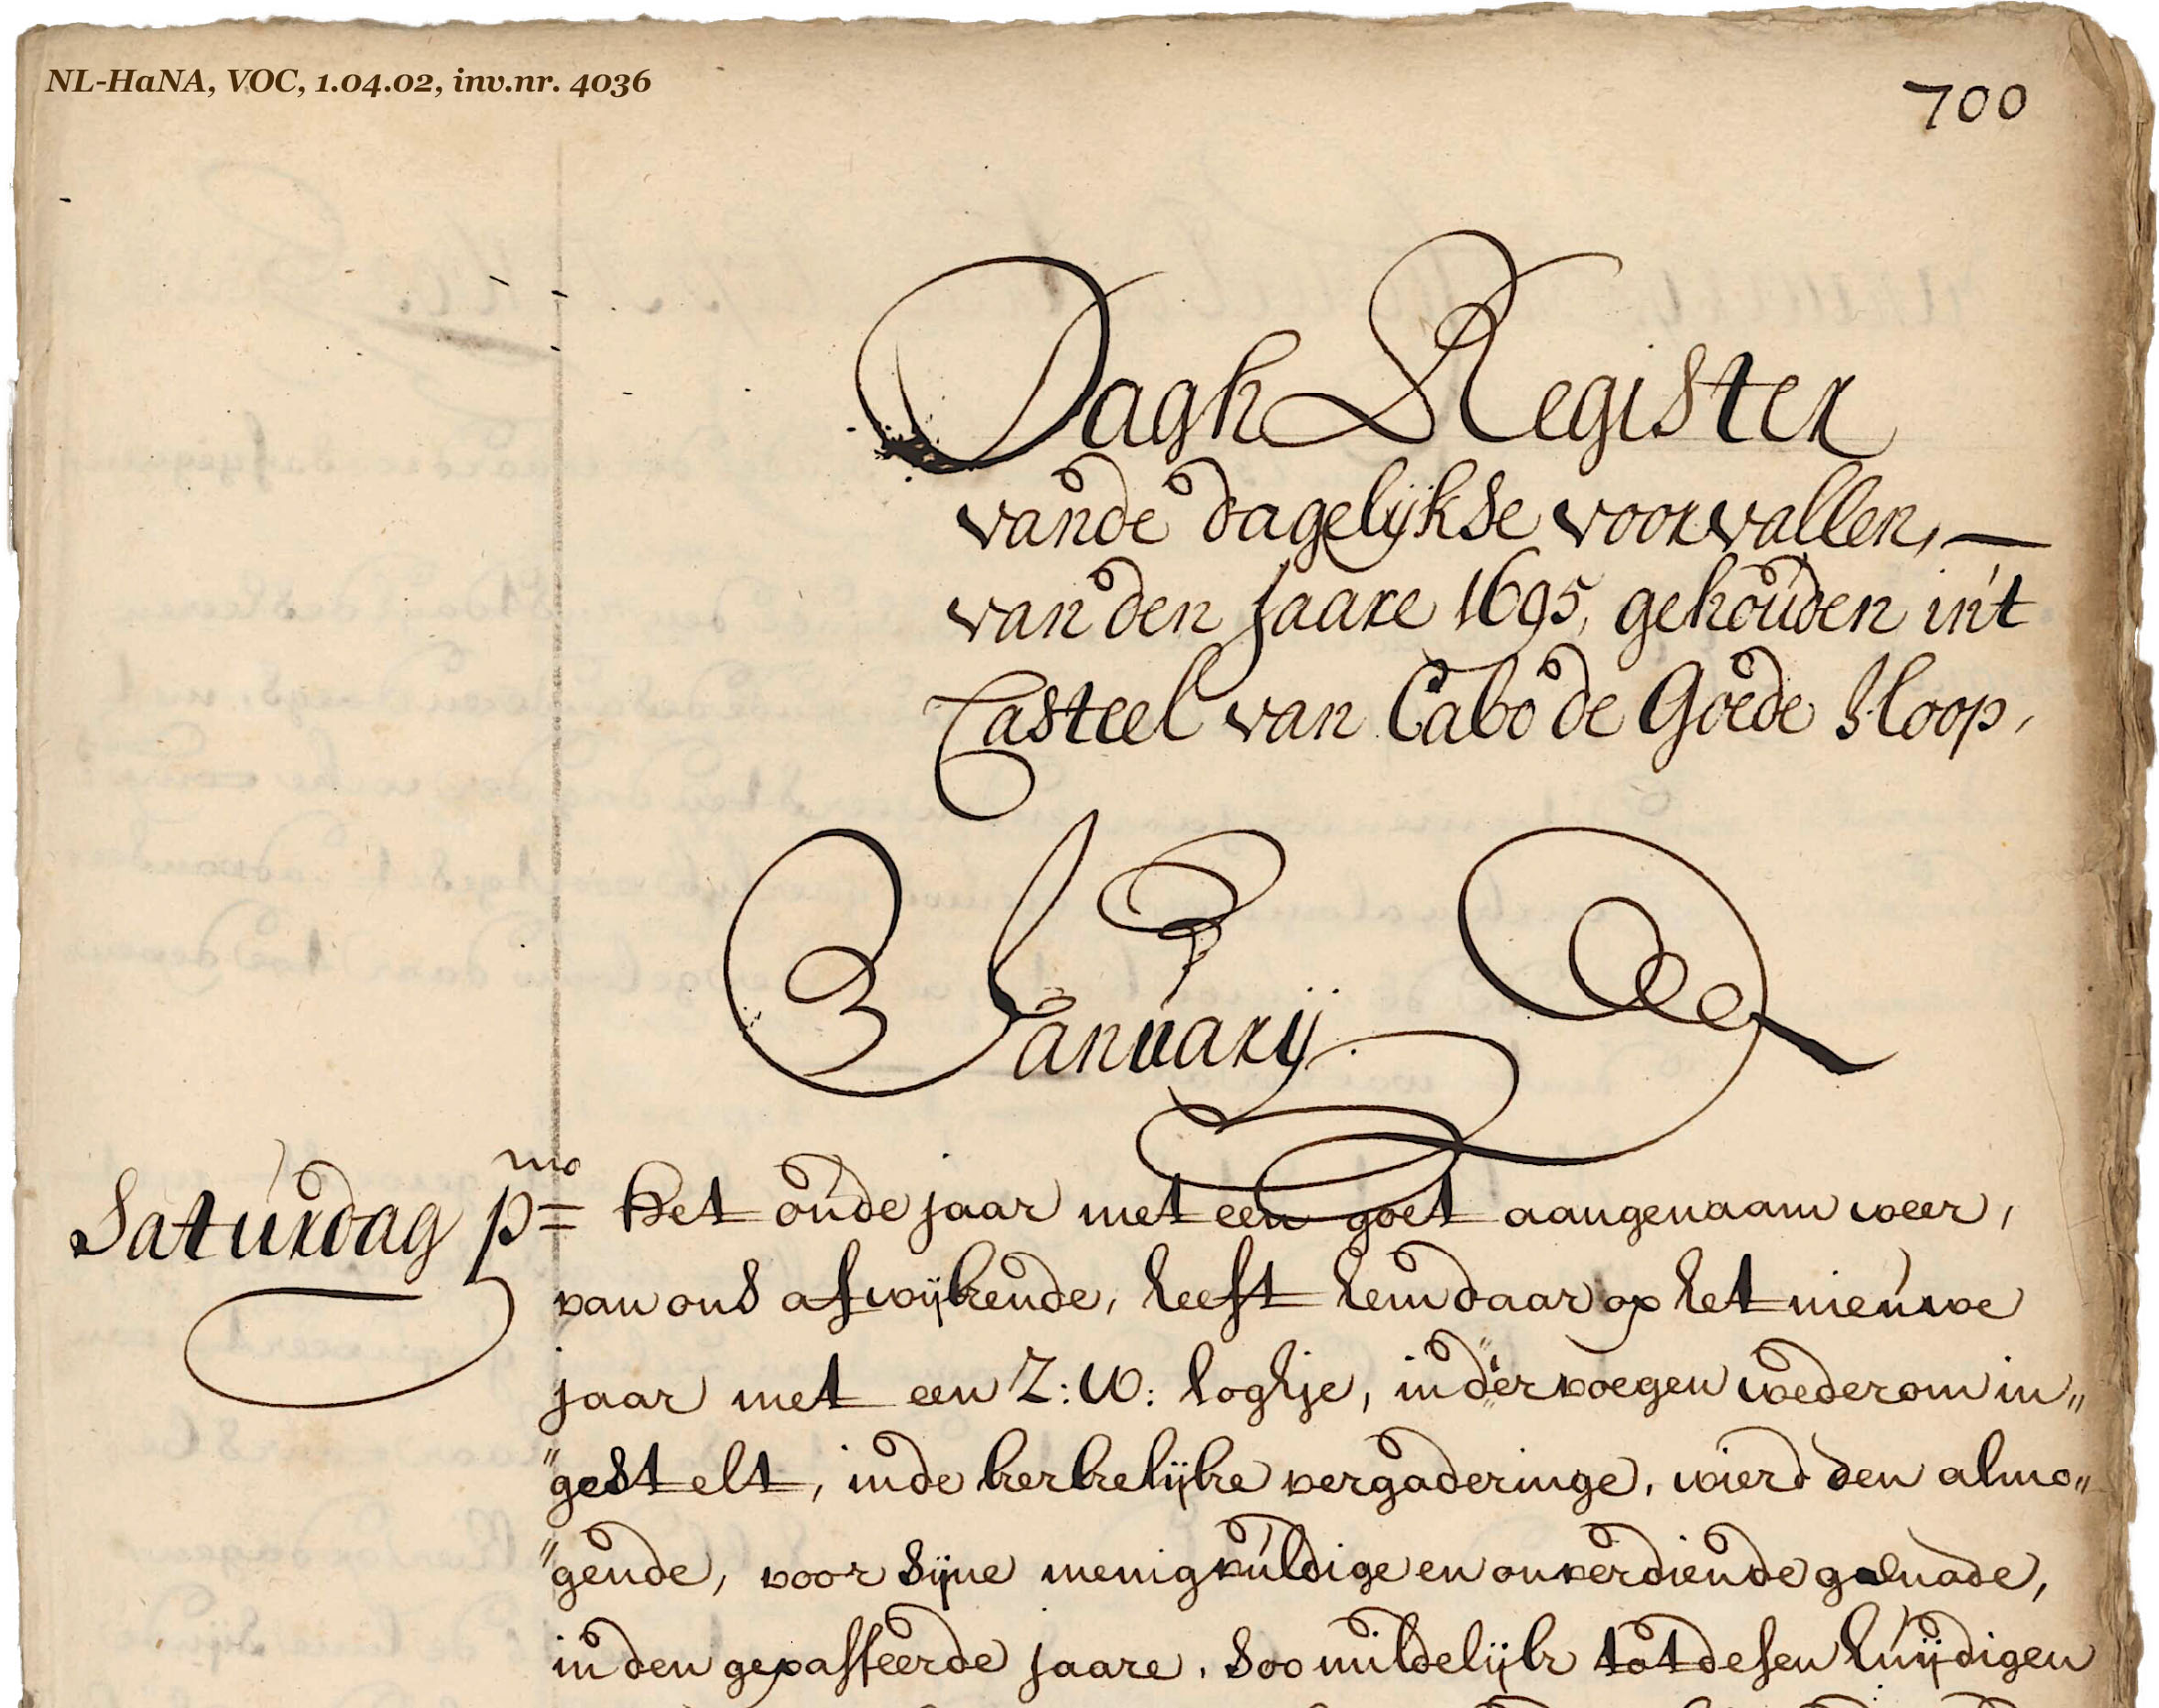 NL-HaNA, VOC, 1.04.02, inv.nr. 4036
700
Dagh Register
vande dagelijkse voorvallen,
van den Jaare 1695, gehouden in't
Casteel van Cabo de Goede Hoop,
January.
Saturdag pmo Het oude jaar met een goet aangenaam weer,
van ons afwijkende, heeft hem daar op het nieuwe
jaar met een Z: W: loghje, in dervoegen wederom in„
„gestelt, inde kerkelijke vergaderinge, wierd den almo„
„gende, voor sijne menigvuldige en onverdiende genade,
in den gepasseerde jaare, soo mildelijk tot desen huijdigen